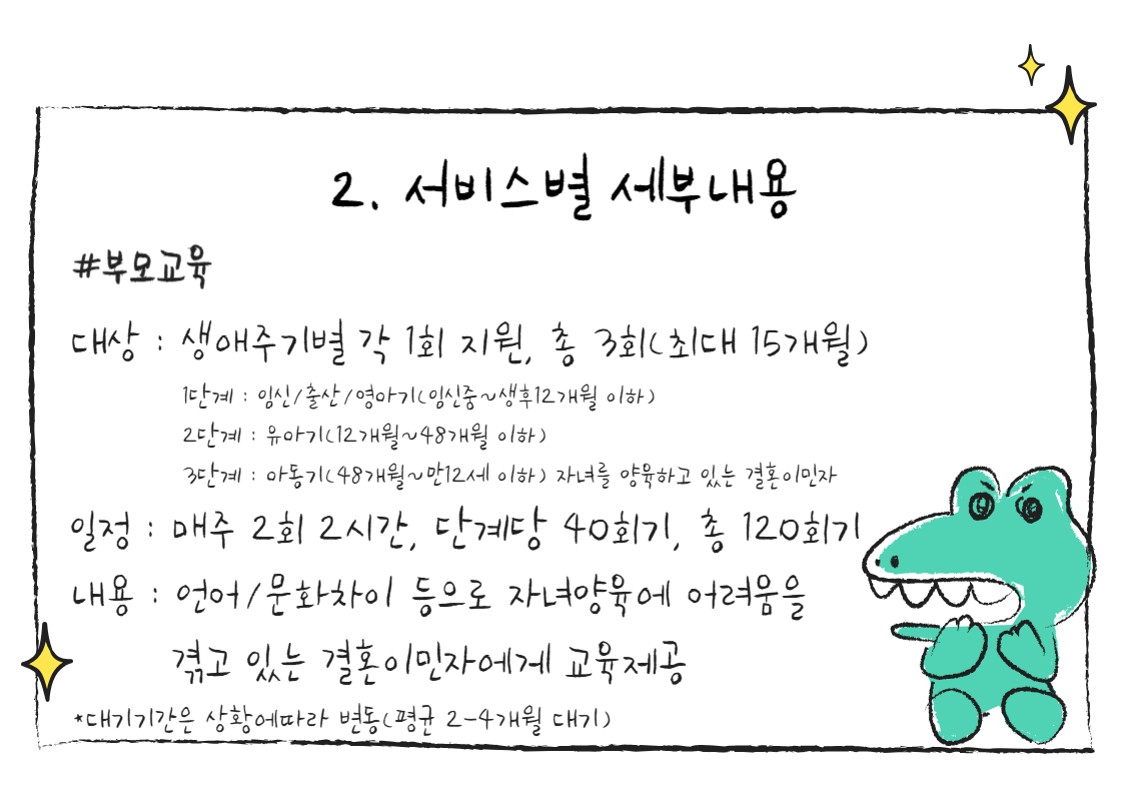 2. 서비스별 세부내용
#부모교육
대상 : 생애주기별 각 1회 지원, 총 3회(최대 15개월)
1단계 : 임신/출산/영아기(임신중~생후12개월 이하)
2단계 : 유아기(12개월~48개월 이하)
3단계 : 아동기(48개월~만12세 이하) 자녀를 양육하고 있는 결혼이민자
일정 : 매주 2회 2시간, 단계당 40회기, 총 120회기
내용 : 언어/문화차이 등으로 자녀양육에 어려움을
겪고 있는 결혼이민자에게 교육제공
*대기기간은 상황에따라 변동(평균 2-4개월 대기)